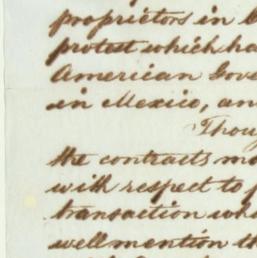 proprietors in
protest which ha
American Gove
in Mexico, an
Thoug
the contracts ma
with respect to
transaction wh
well mention th